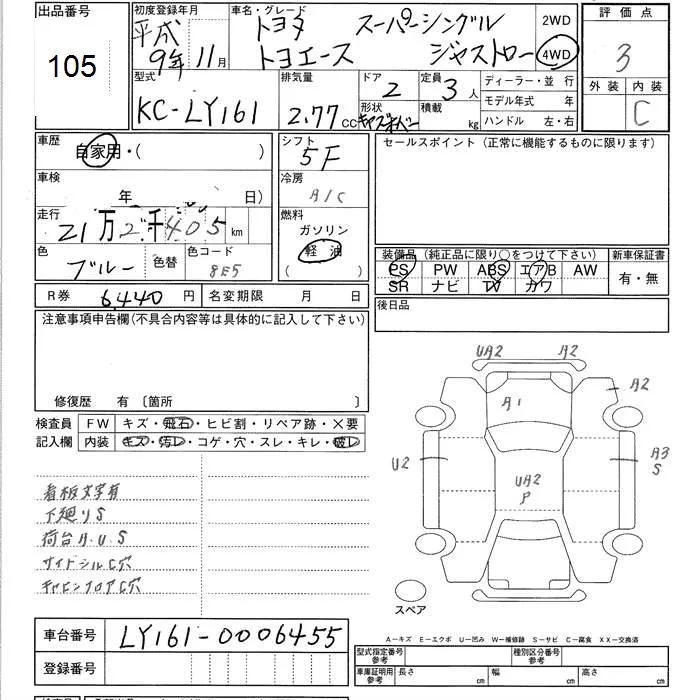 出品番号 初度登録年月 車名・グレード 評価点
105 平成 9年 11月 トヨタ スーパーシングル 2WD 3
トヨエース ジャストロー 4WD
型式 排気量 ドア 定員 ディーラー・並行 外装 内装
KC-LY161 2.77cc 2 3人 モデル年式 年 C
形状 積載 kg ハンドル 左・右
車歴 シフト セールスポイント(正常に機能するものに限ります)
自家用・( ) 5F
車検 冷房
年 日) A/C
走行 燃料
21万2千405km ガソリン
色 色替 色コード 軽油 装備品(純正品に限り○をつけて下さい) 新車保証書
ブルー 8E5 ( ) PS PW ABS エアB AW 有・無
SR ナビ TV カワ
R券 6440円 名変期限 月 日 後日品
注意事項申告欄(不具合内容等は具体的に記入して下さい)
修復歴 有 〔箇所 〕
検査員 FW キズ・飛石・ヒビ割・リペア跡・×要
記入欄 内装 キズ・汚レ・コゲ・穴・スレ・キレ・破レ
UA2 A2
A1 A2
U2 A3
S
UA2
P
看板文字有
下廻りS
荷台A.U.S
サイドシルC穴
キャビンフロアC穴
スペア
A−キズ E−エクボ U−凹み W−補修跡 S−サビ C−腐食 XX−交換済
車台番号 LY161-0006455
型式指定番号 参考 種別区分番号 参考
登録番号 車庫証明用 参考 長さ cm 幅 cm 高さ cm